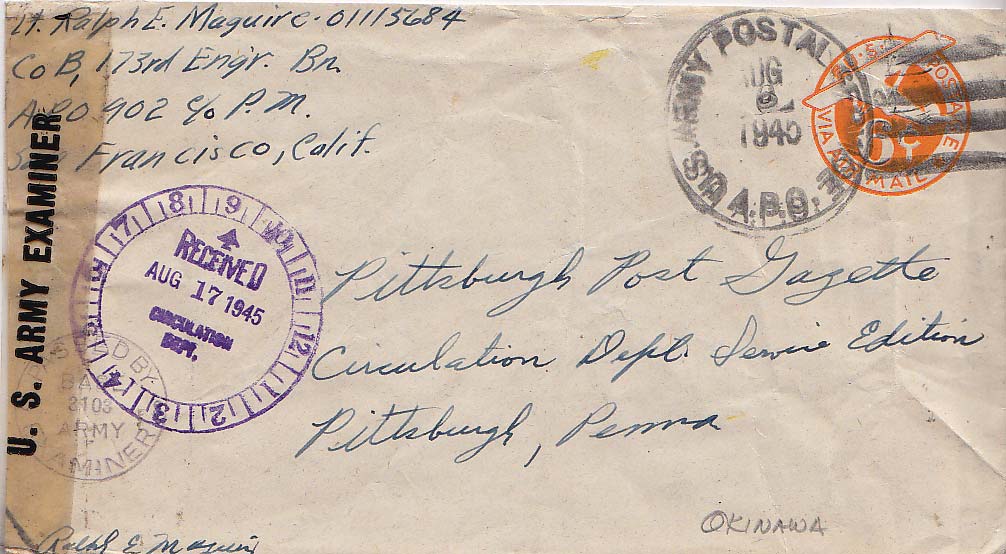 Lt. Ralph E. Maguire - 01115684
Co B, 173rd Engr. Bn.
A.P.O 902 c/o P.M.
San Francisco, Calif.
U. S. ARMY EXAMINER
ARMY POSTAL
AUG
1945
A.P.O.
POSTAGE
6¢
VIA AIR MAIL
7 8 9 10 11 12 1 2 3 4 5 6
RECEIVED
AUG 17 1945
CIRCULATION
DEPT.
Pittsburgh Post Gazette
Circulation Dept. Service Edition
Pittsburgh, Penna
BY
BASE
3103
ARMY
EXAMINER
Ralph E Maguire
OKINAWA